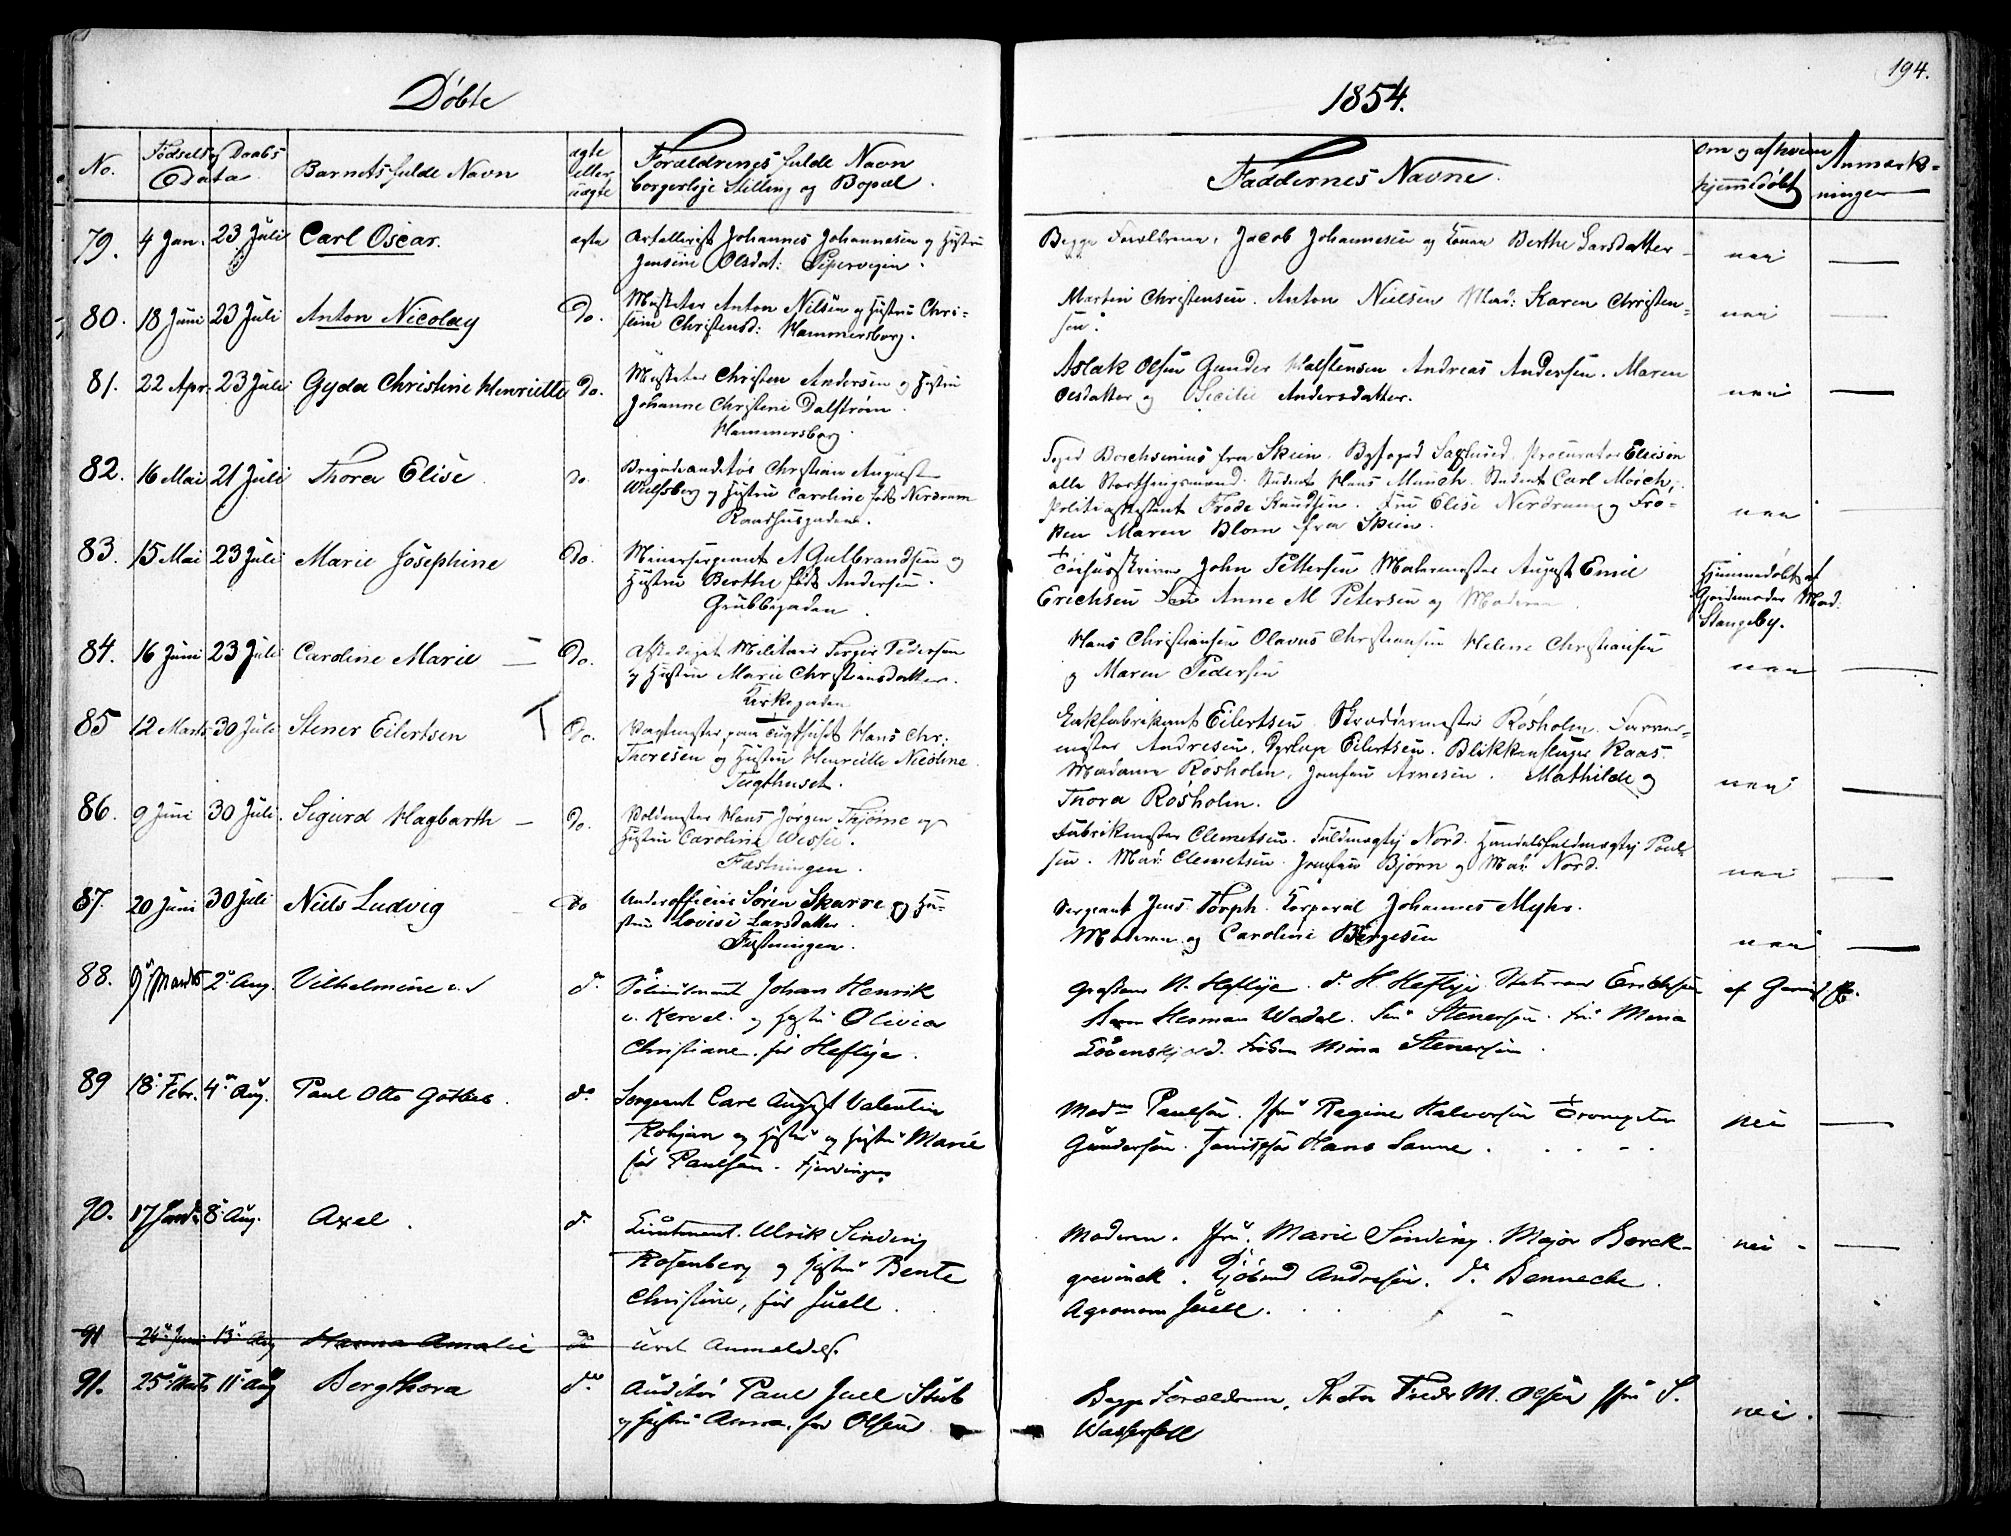 194.
Døbte
1854.
No.
Fødsels og Daabs
Data
Barnets fulde Navn
ægte
eller
uægte
Forældrenes fulde Navn
borgerlige Stilling og Bopæl.
Faddernes Navne.
om og af hvem
hjemmedøbt
Anmærk-
ninger
79. 4 Jan. 23 Juli Carl Oscar. ægte
Artellerist Johannes Johannesen og Hustru
Jensine Olsdat: Pipervigen.
Begge Forældrene, Jacob Johannesen og Kone Berthe Larsdatter
nei
80. 18 Juni 23 Juli Anton Nicolay Do.
Musketer Anton Nilsen og Hustru Chri-
stine Christensd: Hammersborg.
Martin Christensen. Anton Nielsen Mad: Karen Christen-
sen.
nei
81. 22 Apr. 23 Juli Gyda Christine Henriette Do.
Musketer Christen Andersen og Hustru
Johanne Christine Dalstrøm.
Hammersborg.
Aslak Olsen Gunder Halstensen Andreas Andersen. Maren
Olsdatter og Sicilie Andersdatter.
nei
82. 16 Mai 21 Juli Thora Elise do.
Brigadeauditør Christian August
Wulfsberg og Hustru Caroline født Nordrum
Raadhusgaden.
Foged Borchsenius fra Skien. Byfoged Procurator Ellison
alle Storthingsmænd. Student Hans Munch. Student Carl Mörch,
Frode Knudsen. Fru Elise Nordrum og Frø-
ken Maren Blom fra Skien.
nei
83. 15 Mai 23 Juli Marie Josephine Do.
Minersergeant A Gulbrandsen og
Hustru Berthe født Andersen.
Grubbegaden.
John Pettersen Malermester August Emil
Erichsen Anne M Petersen og Moderen
Hjemmedøbt af
Gjordemoder Mad:
Stangeby.
84. 16 Juni 23 Juli Caroline Marie — Do.
Afskediget Militair Torger Pedersen
og Hustru Marie Christiansdatter.
Kirkegaden
Hans Christiansen Olavus Christiansen Helene Christiansen
og Maren Pedersen
nei
85 12 Marts 30 Juli Stener Eilertsen T Do.
Vagtmester paa Tugthuset Hans Chr.
Thoresen og Hustru Henriette Nicoline
Tugthuset.
Lakfabrikant Eilertsen. Skræddermester Rosholm. Farver-
mester Andresen. Eilertsen. Blikkenslager Kaas.
Madame Rosholm, Jomfru Arnesen. Mathilde og
Thora Rosholm.
nei
86. 9 Juni 30 Juli. Sigurd Hagbarth — Do.
Hans Jørgen Thjøme og
Hustru Caroline Wessel.
Fæstningen.
Fabrikmester Clemetsen. Fuldmægtig Nord. Handelsfuldmægtig Poul-
sen. Mad: Clemetsen. Jomfru Bjørn og Mad: Nord.
nei
87. 20 Juni 30 Juli Niels Ludvig Do
Underofficier Søren Skarre og Hu-
stru Lovise Larsdatter.
Fæstningen.
Sergeant Jens Thorph. Korporal Johannes Myhr.
Moderen og Caroline Børgesen
nei
88. 9 Marts 2 Aug. Vilhelmine do
Johan Henrik
v. Kervel. og Hustru Olivia
Christiane, før Heftÿe.
Grosserer H. Heftye. do H Heftye. Statsraad Erichsen
Herman Wedel. Fru Stenersen. fru Maria
Løvenskjold. Frøken Mina Stenersen.
89 18 Febr. 4 Aug. Paul Otto Gotlieb. do
Sergeant Carl August Valentin
Rohjan og Hustru og Hustru Marie
før Paulsen. Fjerdingen
Madm Paulsen. Jfru Regine Halvorsen Trompeter
Gundersen. Hans Sanne.
nei
90. 17 8 Aug. Axel. do
Lieutenant. Ulrik Sinding
Rosenberg og Hustru Bente
Christine, før Juell.
Moderen. Jfru. Marie Sinding. Major Borck-
grevinck. Kjøbmd Andresen. do Bennecke.
Agronom Juell.
nei
91 26 Juni 13 Aug Hanna Amalie do uret Anmeldelse
91. 25 Marts 11 Aug Bergthora do
Auditør Paul Juell Stub
og Hustru Anna, før Olsen
Begge Forældrene, Fredr M. Olsen Jfru S.
Wasserfall
nei.